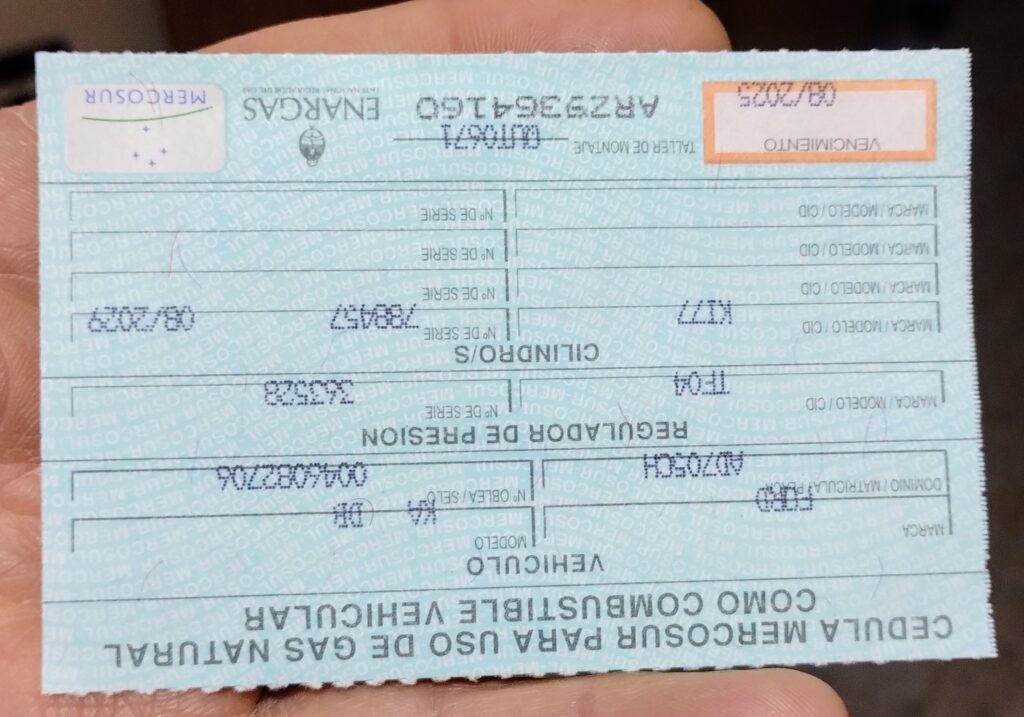 CEDULA MERCOSUR PARA USO DE GAS NATURAL
COMO COMBUSTIBLE VEHICULAR
VEHICULO
MARCA FORD MODELO KA DB
DOMINIO / MATRICULA / AD705CH Nº OBLEA / SELO 0046082706
REGULADOR DE PRESION
MARCA / MODELO / CID TF04 Nº DE SERIE 363528
CILINDRO/S
MARCA / MODELO / CID KI77 Nº DE SERIE 788457 08/2029
MARCA / MODELO / CID Nº DE SERIE
MARCA / MODELO / CID Nº DE SERIE
MARCA / MODELO / CID Nº DE SERIE
VENCIMIENTO 08/2025
TALLER DE MONTAJE QUT0671
ARZ9364160
ENARGAS
ENTE NACIONAL REGULADOR DEL GAS
MERCOSUR